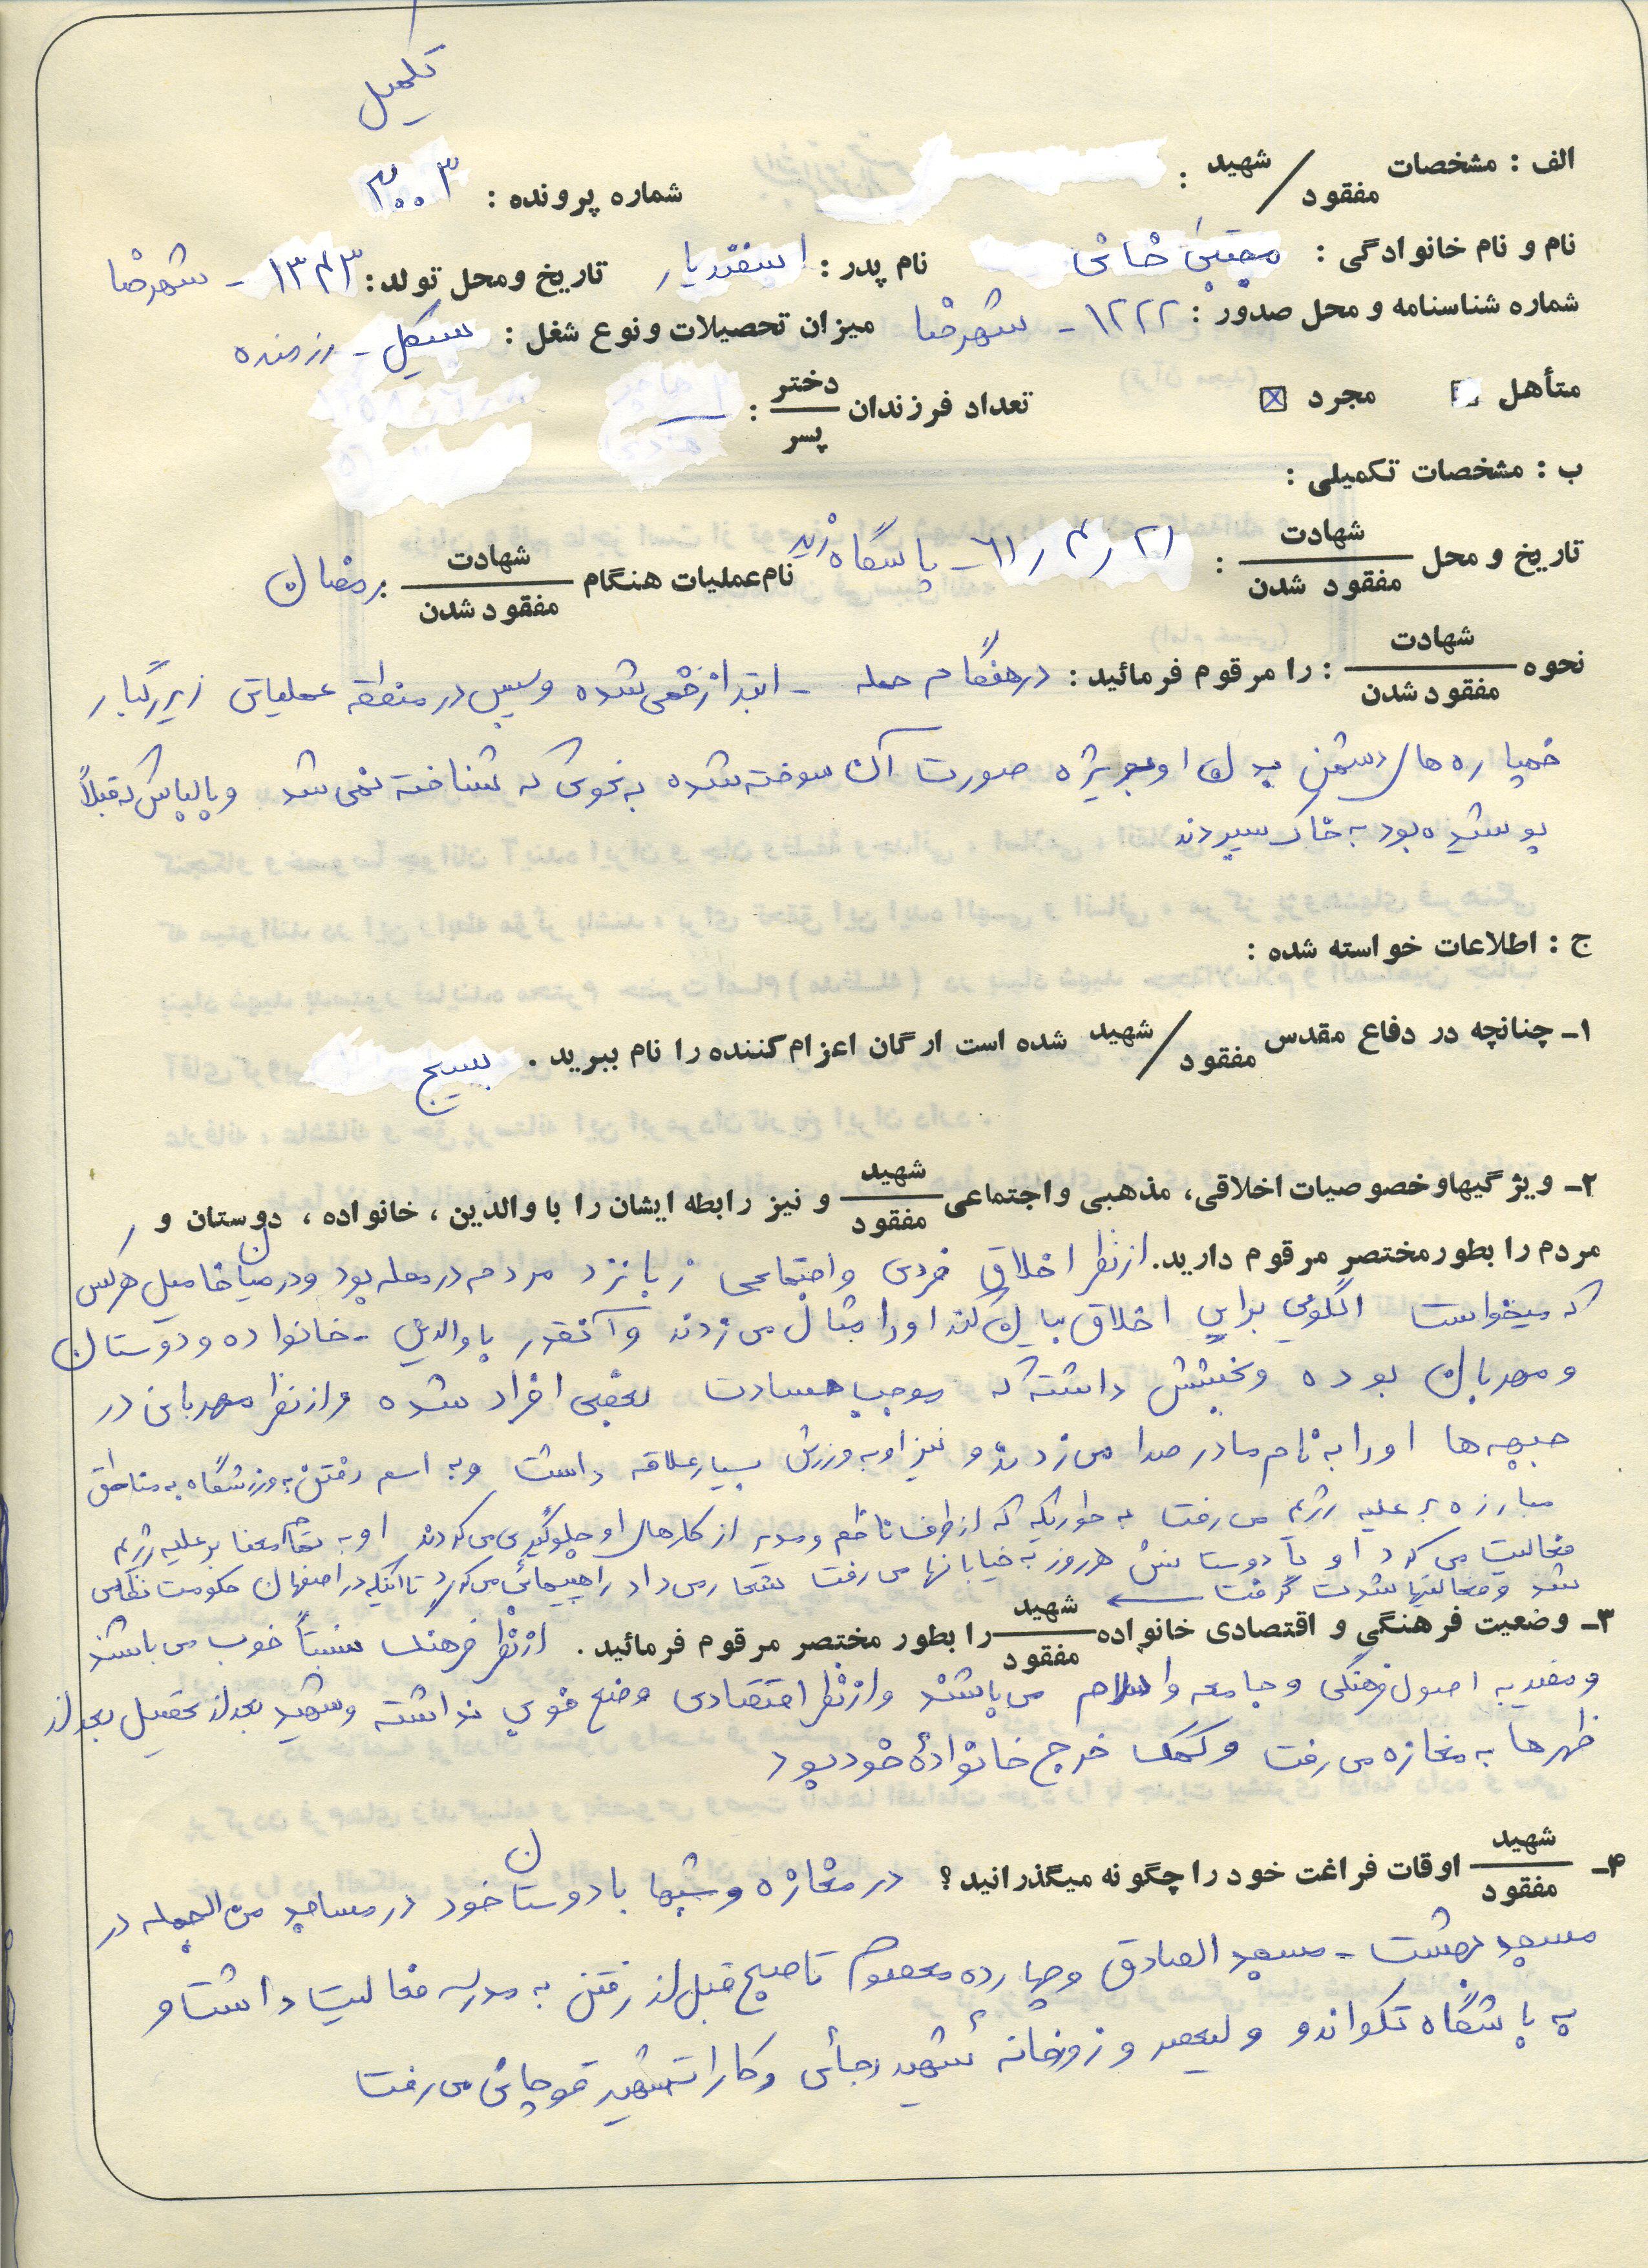 تکمیل
الف : مشخصات شهید / مفقود :
شماره پرونده : ۳۰۰۳
نام و نام خانوادگی : مجتبی خانی نام پدر : اسفندیار تاریخ و محل تولد : ۱۳۴۳ - شهرضا
شماره شناسنامه و محل صدور : ۱۲۲۲ - شهرضا میزان تحصیلات و نوع شغل : سیکل - رزمنده
متأهل مجرد ☒ تعداد فرزندان دختر / پسر : —
ب : مشخصات تکمیلی :
تاریخ و محل شهادت / مفقود شدن : ۶۱/۴/۲۱ - پاسگاه زید نام عملیات هنگام شهادت / مفقود شدن : رمضان
نحوه شهادت / مفقود شدن : را مرقوم فرمائید : در هنگام حمله - ابتدا زخمی شده و سپس در منطقه عملیاتی زیر رگبار
خمپاره های دشمن بدن او بویژه صورت آن سوخته شده به نحوی که شناخته نمی شد و با لباسی که قبلاً
پوشیده بود به خاک سپردند
ج : اطلاعات خواسته شده :
۱- چنانچه در دفاع مقدس شهید / مفقود شده است ارگان اعزام کننده را نام ببرید . بسیج
۲- ویژگیها و خصوصیات اخلاقی، مذهبی و اجتماعی شهید / مفقود و نیز رابطه ایشان را با والدین ، خانواده ، دوستان و
مردم را بطور مختصر مرقوم دارید. از نظر اخلاق فردی و اجتماعی زبانزد مردم در محله بود و در میان فامیل هر کس
که میخواست الگویی برای اخلاق بیان کند او را مثال می زدند و آنقدر با والدین - خانواده و دوستان
و مهربان بوده و بخشش داشته که موجب حسادت بعضی افراد شده و از نظر مهربانی در
جبهه ها او را به نام مادر صدا می زدند و نیز او به ورزش بسیار علاقه داشت و به اسم رفتن به ورزشگاه به مناطق
مبارزه بر علیه رژیم می رفت به طوریکه که از طرف ناظم و مدیر از کارهای او جلوگیری می کردند او به تمام معنا بر علیه رژیم
فعالیت می کرد او با دوستانش هر روز به خیابانها می رفت شعار می داد راهپیمائی می کرد تا اینکه در اصفهان حکومت نظامی
شد و فعالیتها شدت گرفت ←
۳- وضعیت فرهنگی و اقتصادی خانواده شهید / مفقود را بطور مختصر مرقوم فرمائید . از نظر فرهنگ نسبتاً خوب می باشند
و مقید به اصول فرهنگی و جامعه و اسلام می باشند و از نظر اقتصادی وضع خوبی نداشته و شهید بعد از تحصیل بعد از
ظهرها به مغازه می رفت و کمک خرج خانوادهٔ خود بود
۴- شهید / مفقود اوقات فراغت خود را چگونه میگذرانید ؟ در مغازه و شبها با دوستان خود در مساجد من الجمله در
مسجد بهشت - مسجد الصادق و چهارده معصوم تا صبح قبل از رفتن به مدرسه فعالیت داشت و
به باشگاه تکواندو ولیعصر و زورخانه شهید رجائی و کاراته شهید قوچانی می رفت